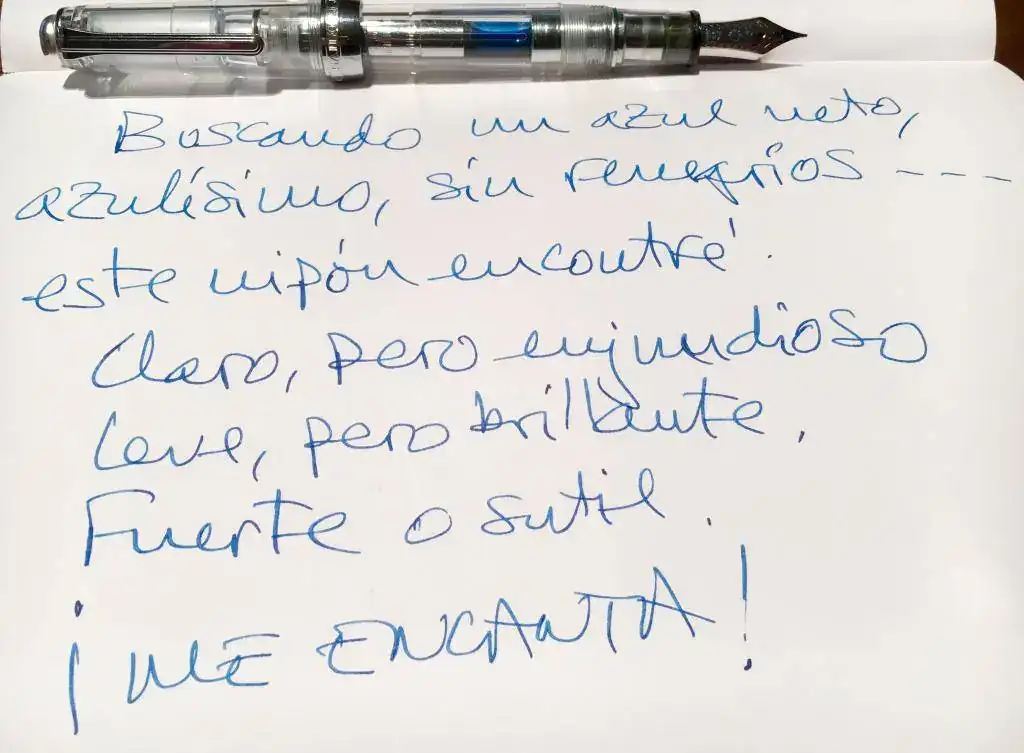 Buscando un azul neto,
azulísimo, sin renegríos ---
este nipón encontré.
Claro, pero enjundioso
Leve, pero brillante.
Fuerte o sutil.
¡ME ENCANTA!